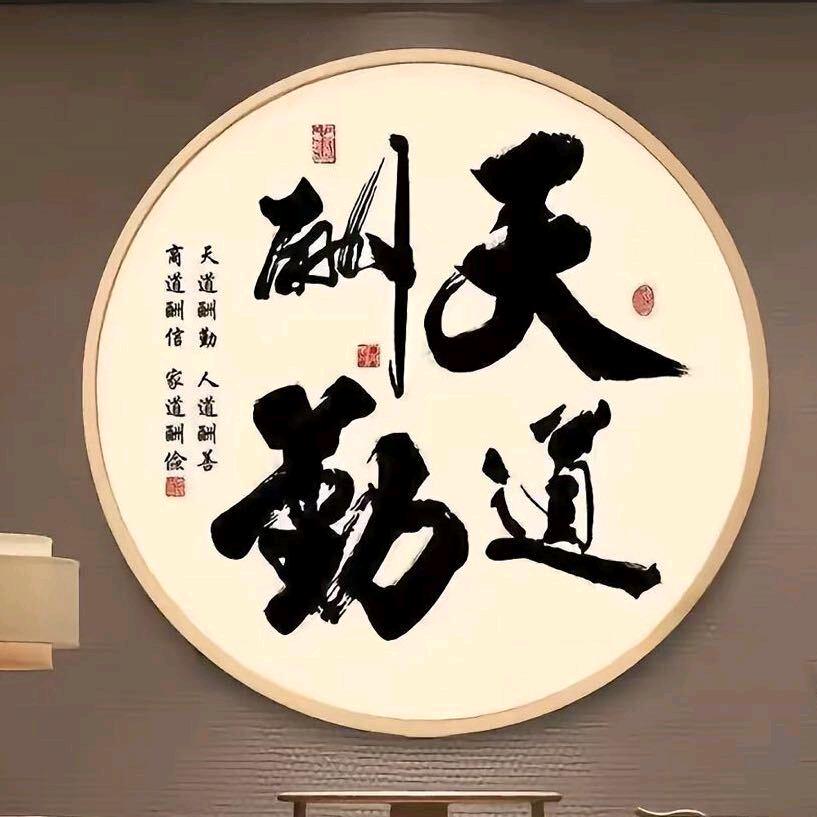 天道
酬勤
天道酬勤 人道酬善
商道酬信 家道酬儉